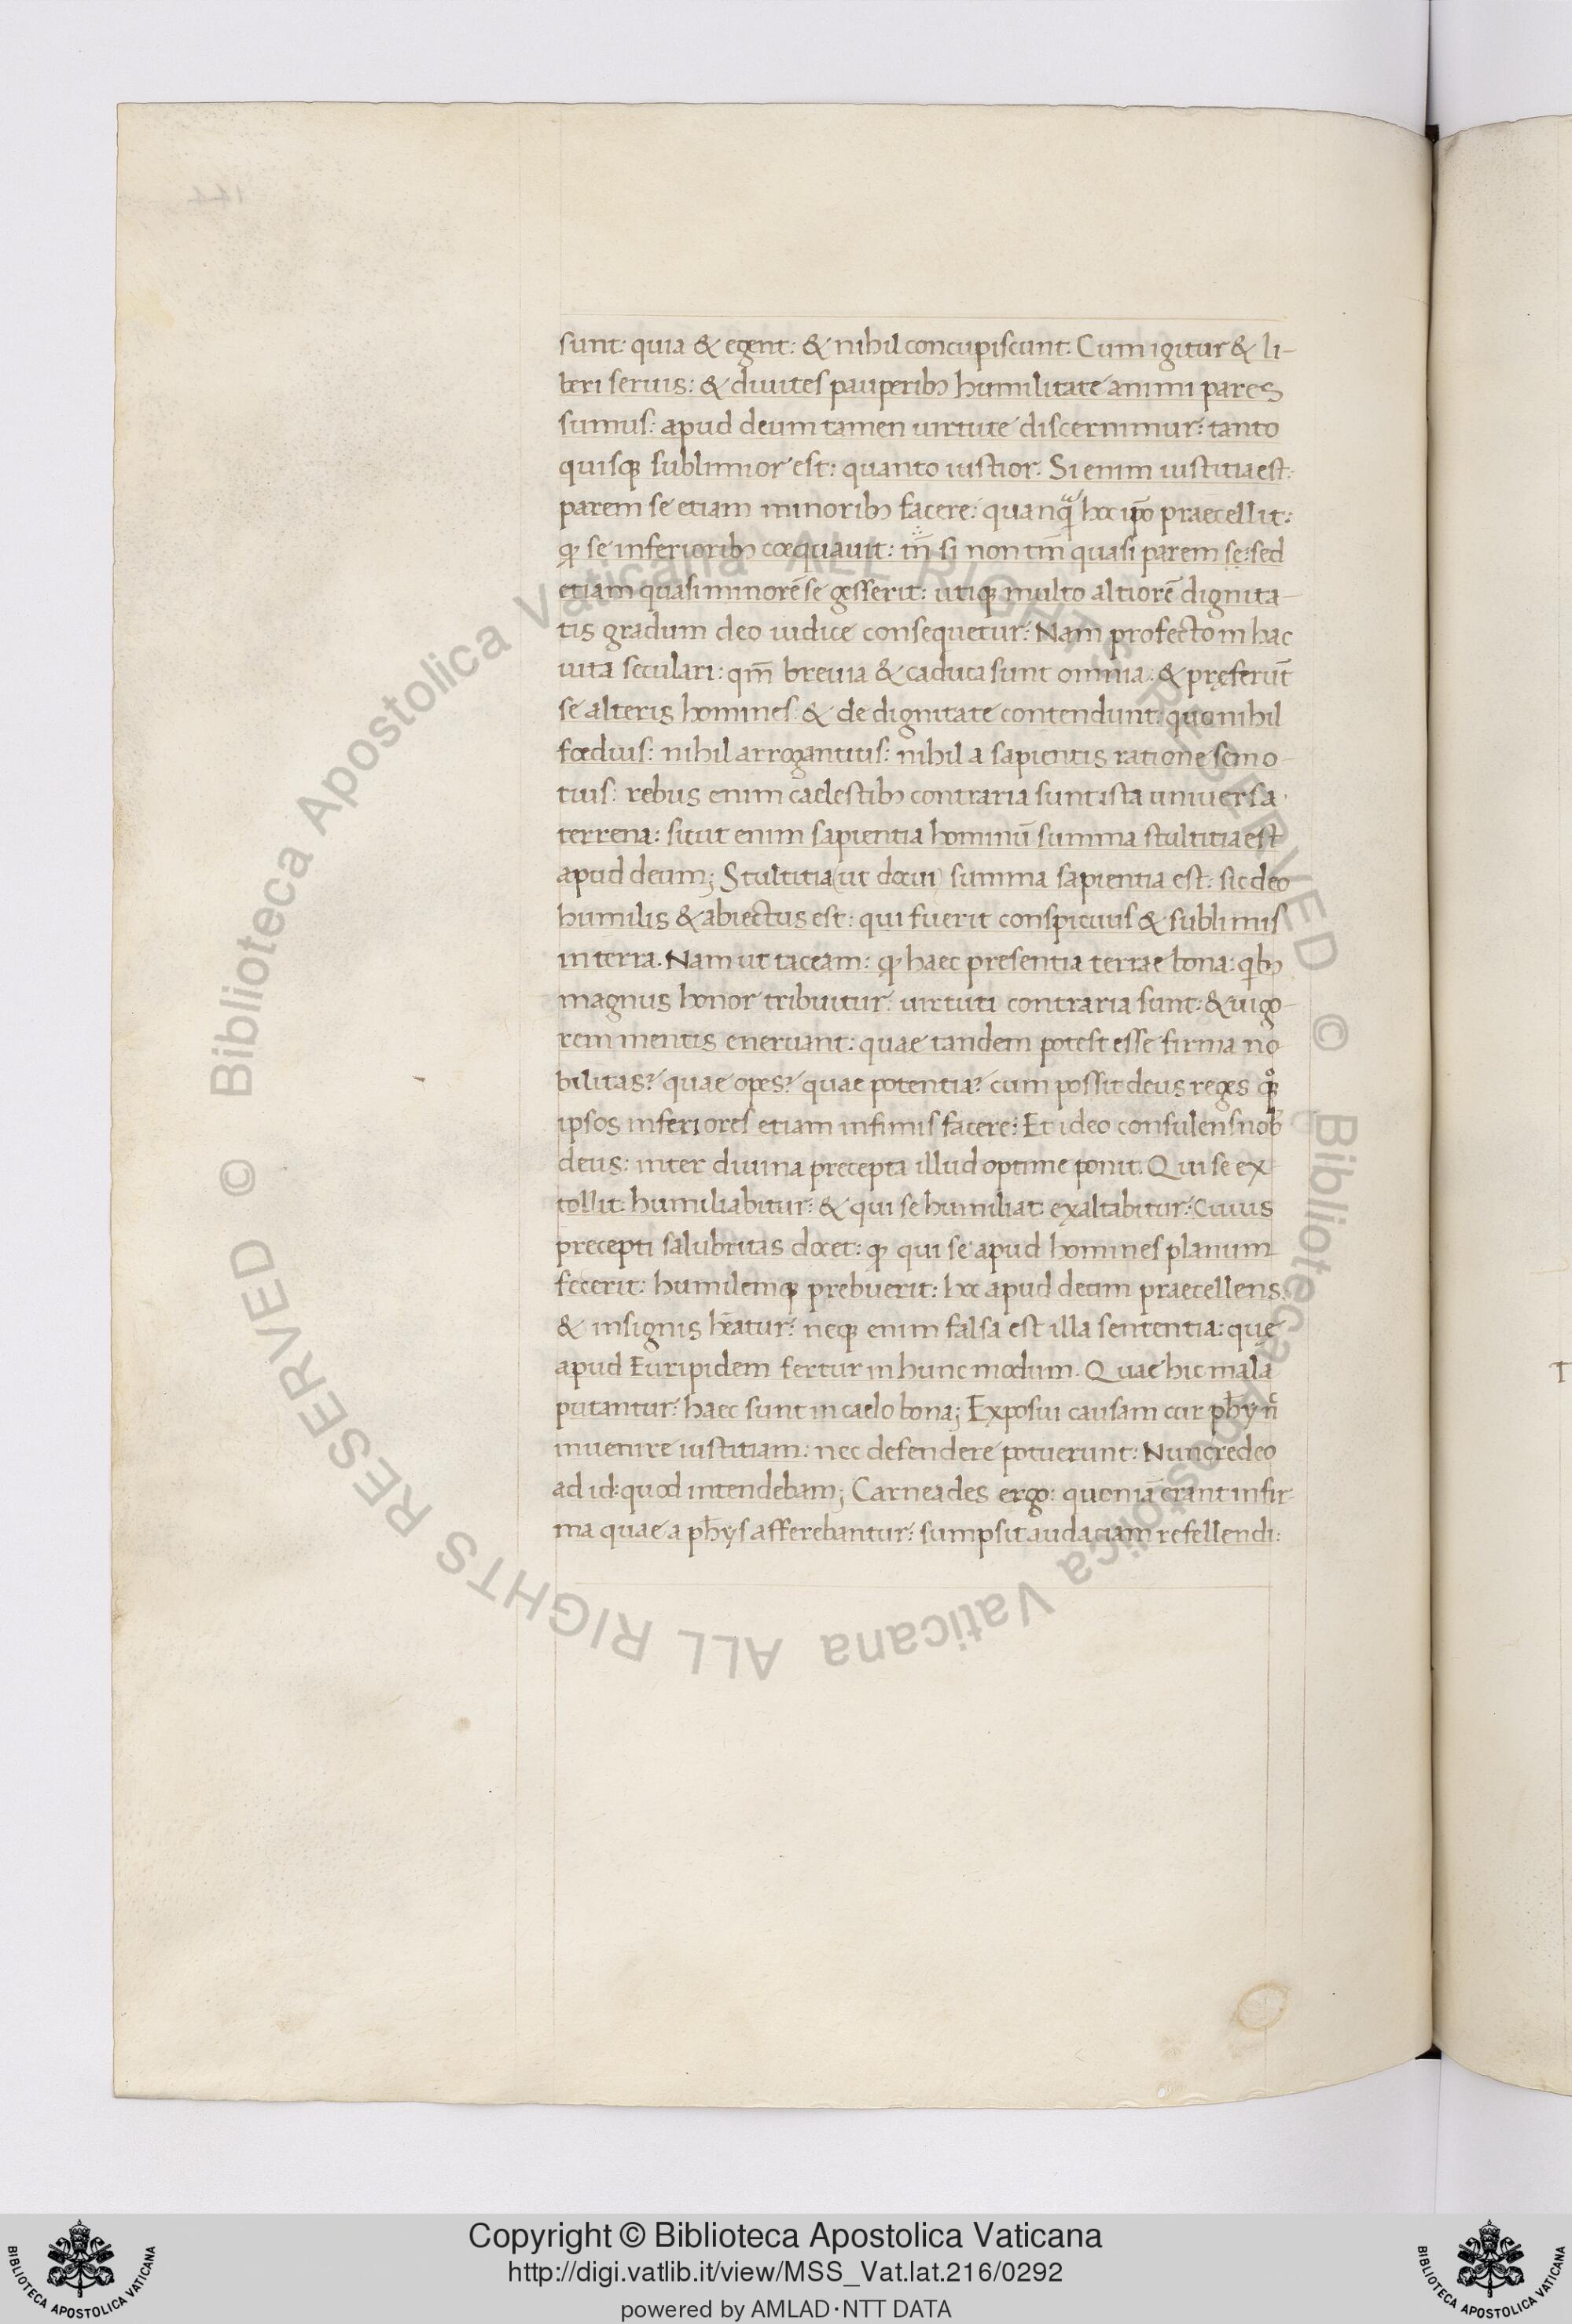 sunt: quia & egent: & nihil concupiscunt. Cum igitur & li-
beri seruis: & diuites pauperibꝫ humilitate animi pares
sumus: apud deum tamen uirtute discernimur: tanto
quisqꝫ sublimior est: quanto iustior. Si enim iustitia est:
parem se etiam minoribꝫ facere: quanqᷓ hoc ip̄o praecellit:
ꝙ se inferioribꝫ coequauit: tn̄ si non tm̄ quasi parem se: sed
etiam quasi minorē se gesserit: utiqꝫ multo altiorē dignita-
tis gradum deo iudice consequetur: Nam profecto in hac
uita seculari: qm̄ breuia & caduca sunt omnia: & pręferūt
se alteris homines: & de dignitate contendunt: quo nihil
foedius: nihil arrogantius: nihil a sapientis ratione semo-
tius: rebus enim caelestibꝫ contraria sunt ista uniuersa
terrena: sicut enim sapientia hominū summa stultitia est
apud deum; Stultitia (ut docui) summa sapientia est: sic deo
humilis & abiectus est: qui fuerit conspicuus & sublimis
in terra. Nam ut taceam: ꝙ haec presentia terrae bona: qibꝫ
magnus honor tribuitur: uirtuti contraria sunt: & uigo-
rem mentis eneruant: quae tandem potest esse firma no
bilitas? quae opes? quae potentia? cum possit deus reges qͦqꝫ
ipsos inferiores etiam infimis facere: Et ideo consulens nob̄
deus: inter diuina precepta illud optime ponit. Qui se ex-
tollit: humiliabitur: & qui se humiliat exaltabitur: Cuius
precepti salubritas docet: ꝙ qui se apud homines planum
fecerit: humilemqꝫ prebuerit: hoc apud deum praecellens:
& insignis hēatur: neqꝫ enim falsa est illa sententia: quę
apud Euripidem fertur in hunc modum. Quae hic mala
putantur: haec sunt in caelo bona; Exposui causam cur ph̄y n̄
inuenire iustitiam: nec defendere potuerunt: Nunc redeo
ad id: quod intendebam; Carneades ergo: quoniā erant infir-
ma quae a ph̄ys afferebantur: sumpsit audaciam refellendi:
© Biblioteca Apostolica Vaticana ALL RIGHTS RESERVED
© Biblioteca Apostolica Vaticana ALL RIGHTS RESERVED
Copyright © Biblioteca Apostolica Vaticana
http://digi.vatlib.it/view/MSS_Vat.lat.216/0292
powered by AMLAD·NTT DATA
BIBLIOTECA APOSTOLICA VATICANA
BIBLIOTECA APOSTOLICA VATICANA